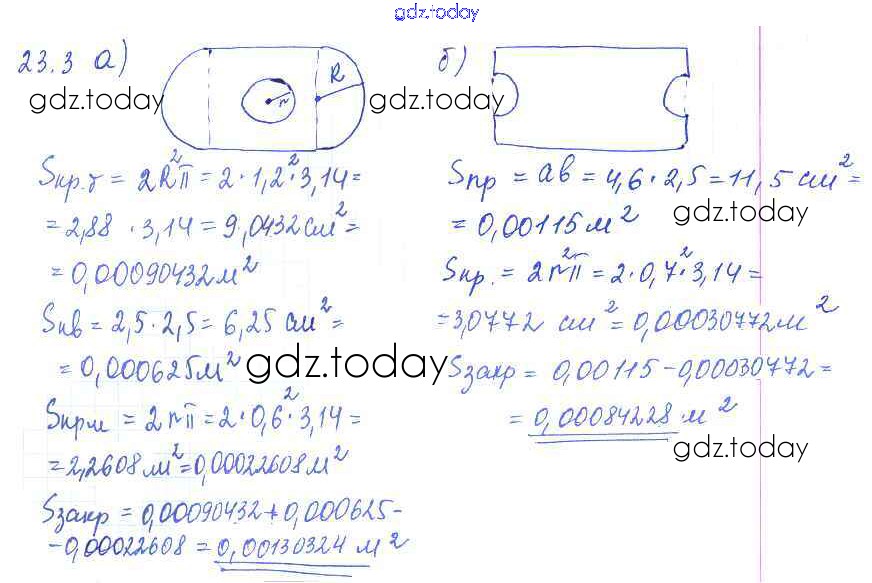 gdz.today
23.3 а)
R
r
gdz.today
Sкр.б = 2R²π = 2·1,2²·3,14 =
= 2,88 · 3,14 = 9,0432 см² =
= 0,00090432 м²
Sкв = 2,5·2,5 = 6,25 см² =
= 0,000625 м²
gdz.today
Sкрм = 2r²π = 2·0,6²·3,14 =
= 2,2608 м² = 0,00022608 м²
Sзакр = 0,00090432 + 0,000625 -
- 0,00022608 = 0,00130324 м²
б)
gdz.today
Sпр = ab = 4,6·2,5 = 11,5 см² =
= 0,00115 м²
gdz.today
Sкр. = 2r²π = 2·0,7²·3,14 =
= 3,0772 см² = 0,00030772 м²
Sзакр = 0,00115 - 0,00030772 =
= 0,00084228 м²
gdz.today